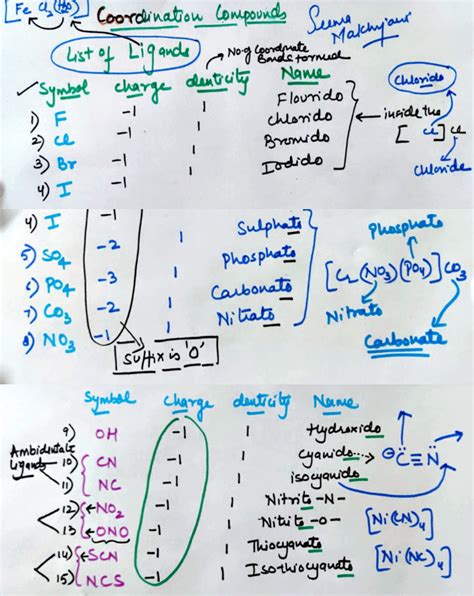 [Fe Cl3(H2O)]
Coordination Compounds
Seema Makhijani
List of Ligands
No. of Coordinate
Bonds formed
✓ Symbol charge denticity Name
1) F -1 1 Flourido
2) Cl -1 1 Chlorido
3) Br -1 Bromido
4) I -1 1 Iodido
Chlorido
← inside the [ Cl ] Cl
Chloride
4) I -1
5) SO4 -2 1 Sulphato
6) PO4 -3 1 Phosphato
7) CO3 -2 Carbonato
8) NO3 -1 1 Nitrato
Suffix is 'O'
Phosphato
(NO3)(PO4)] CO3
Nitrato
Carbonate
Symbol Charge denticity Name
9) OH -1 1 Hydroxido
Ambidentate
Ligands
10) CN -1 1 Cyanido
11) NC -1 1 isocyanido
12) ←NO2 -1 1 Nitrito -N-
13) ←ONO -1 1 Nitito -O-
14) ←SCN -1 1 Thiocyanato
15) NCS -1 1 Isothiocyanato
⊖ C≡N
[Ni(CN)4]
[Ni(NC)4]